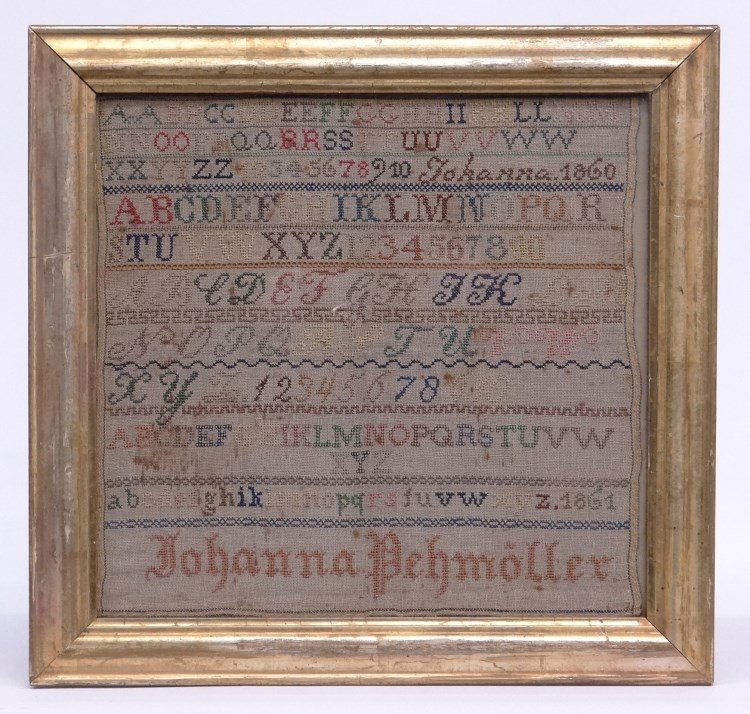 AA CC EEFF II LL
OO QQRRSS UUVVWW
XXYYZZ 345678910 Johanna.1860
ABCDEF IKLMNOPQR
STU XYZ12345678
ABCDEF GH IK
NOPQ TU
XY 12345678
ABCDEF IKLMNOPQRSTUVW
XYZ
ab ghik nopqrsſuvw xyz.1861
Johanna Pehmöller